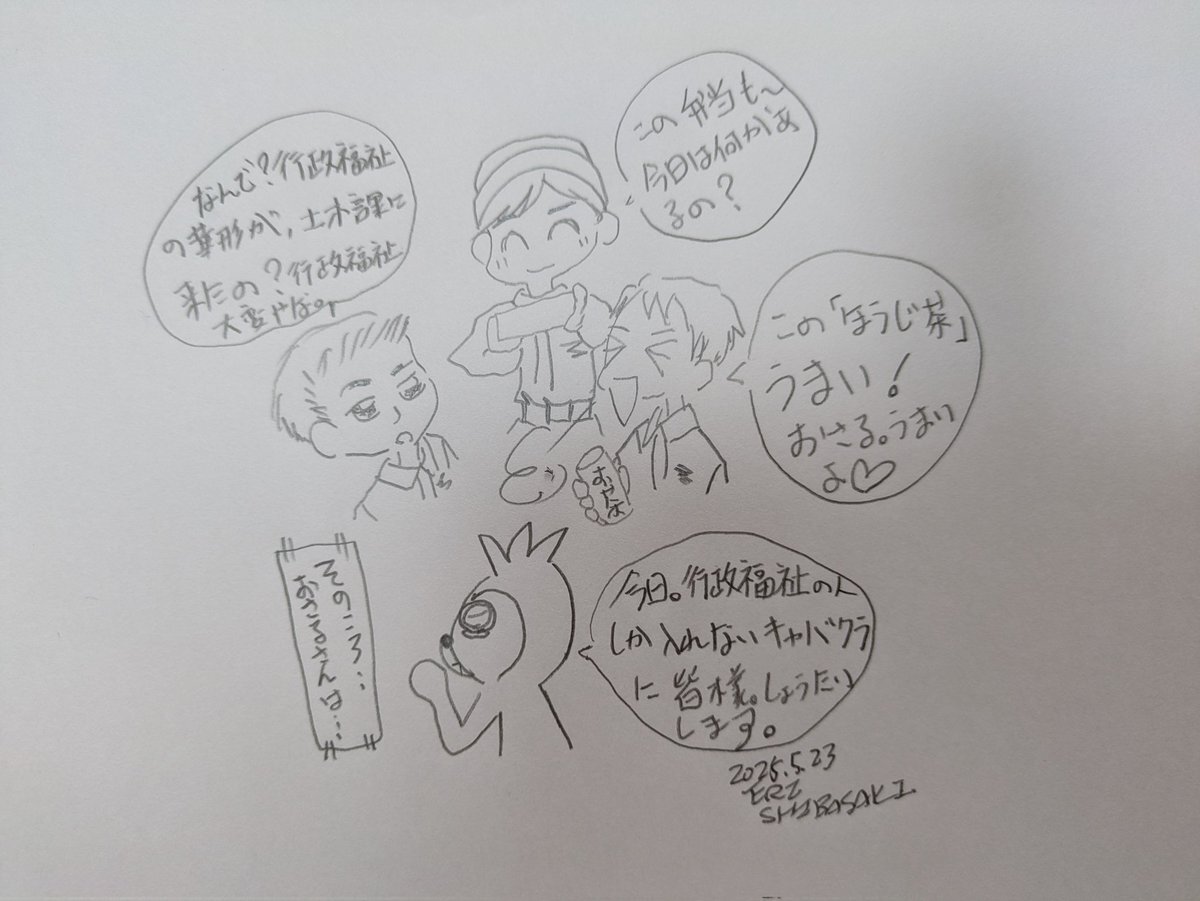 なんで?行政福祉
の華形が,土木課に
来たの?行政福祉
大変やなの
この弁当も〜
今日は何があ
るの?
この「ほうじ茶」
うまい!
おさる。うまい
よ♡
お茶
そのころ...
おさるさんは...
今日。行政福祉の人
しか入れないキャバクラ
に皆様。しょうたい
します。
2025.5.23
ERI
SHIBASAKI